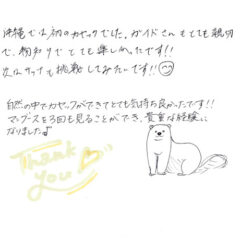 沖縄では初のカヤックでした。ガイドさんもとても親切
で、物知りでとても楽しかったです!!
次はサップも挑戦してみたいです!!
自然の中でカヤックができてとても気持ち良かったです!!
マングースを3回も見ることができ、貴重な経験に
なりました♪
Thank
you